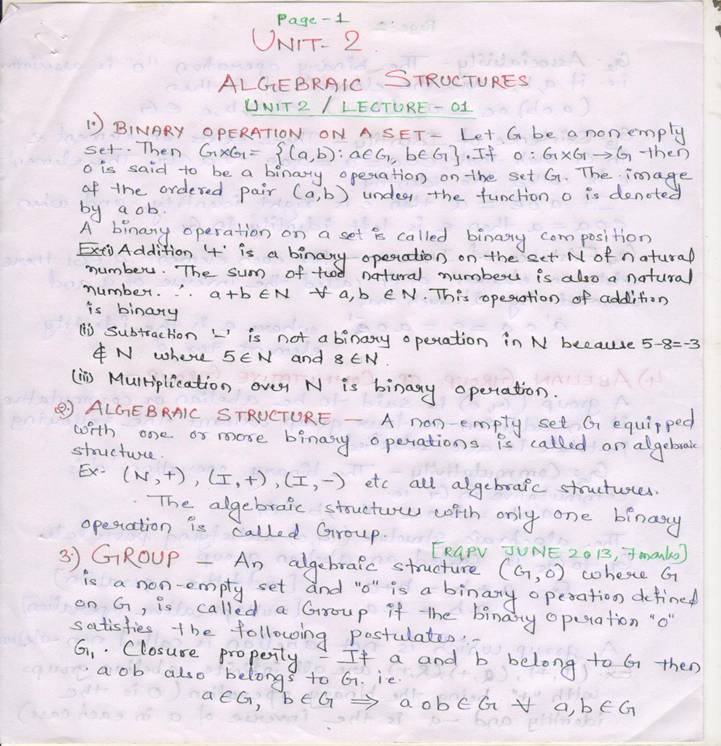 Page-1
UNIT-2
ALGEBRAIC STRUCTURES
UNIT 2 / LECTURE-01
1.) BINARY OPERATION ON A SET - Let G be a non empty
set. Then G×G = {(a,b): a∈G, b∈G}. If o: G×G→G then
o is said to be a binary operation on the set G. The image
of the ordered pair (a,b) under the function o is denoted
by a o b.
A binary operation on a set is called binary composition
Ex:(i) Addition '+' is a binary operation on the set N of natural
numbers. The sum of two natural numbers is also a natural
number. ∴ a+b ∈N ∀ a,b ∈N. This operation of addition
is binary
(ii) Subtraction '-' is not a binary operation in N because 5-8=-3
∉ N where 5∈N and 8∈N.
(iii) Multiplication over N is binary peration.
2.) ALGEBRAIC STRUCTURE - A non-empty set G equipped
with one or more binary operations is called an algebraic
structure.
Ex- (N,+), (I,+), (I,-) etc all algebraic strutures.
The algebraic structure with only one binary
operation is called Group.
[RGPV JUNE 2013, 7marks]
3.) GROUP - An algebraic structure (G,o) where G
is a non-empty set and "o" is a binary operation defined
on G is called a Group if the binary operation "o"
satisfies the following postulates:-
G1. Closure property - If a and b belong to G then
a o b also belongs to G. i.e.
a∈G, b∈G ⇒ a o b∈G ∀ a,b∈G